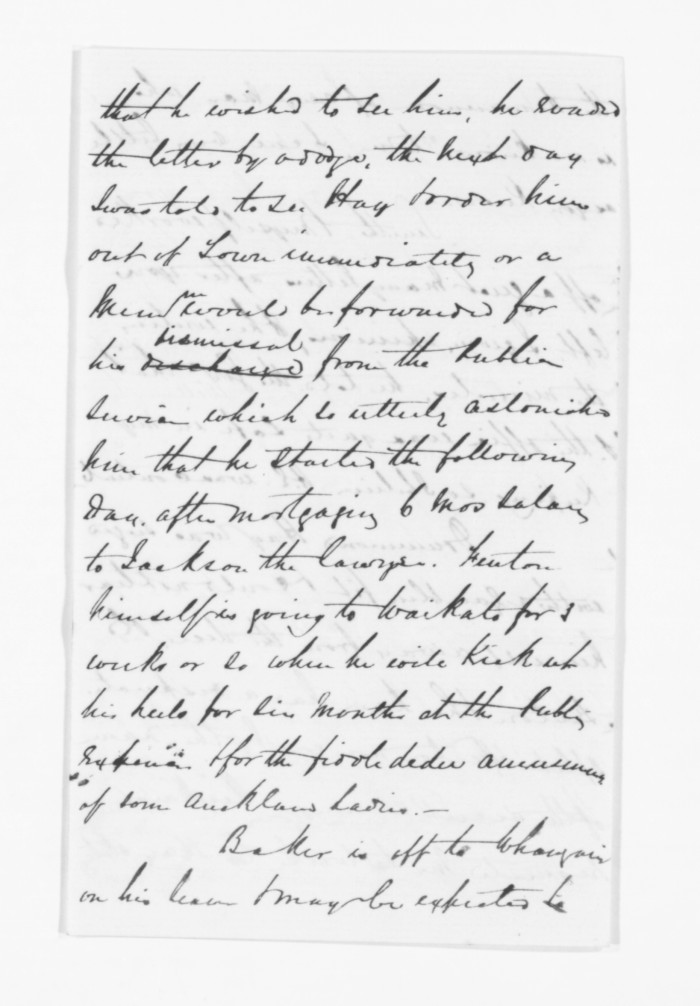 that he wished to see him, he evaded
the letter by a dodge, the next day
I was told to see Hay & order him
out of Town immediately or a
Memm would be forwarded for
his discharge dismissal from the Public
Service which so utterly astonished
him that he started the following
day. after mortgaging 6 Mos Salary
to Jackson the lawyer. Fenton
himself is going to Waikato for 3
weeks or so when he will Kick up
his heels for six Months at the Public
expense & for the fiddle dedee amusement
of some Auckland Ladies. —
Baker is off to
on his leave & may be expected to